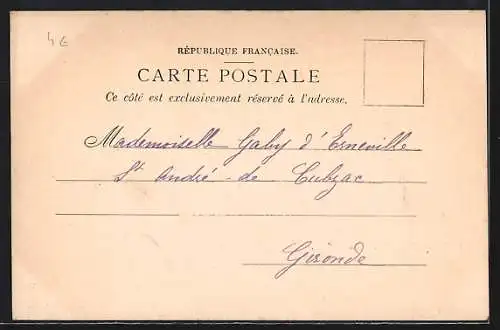 4€
RÉPUBLIQUE FRANÇAISE.
CARTE POSTALE
Ce côté est exclusivement réservé à l'adresse.
Mademoiselle Gaby d'Erneville
St André-de Cubzac
Gironde